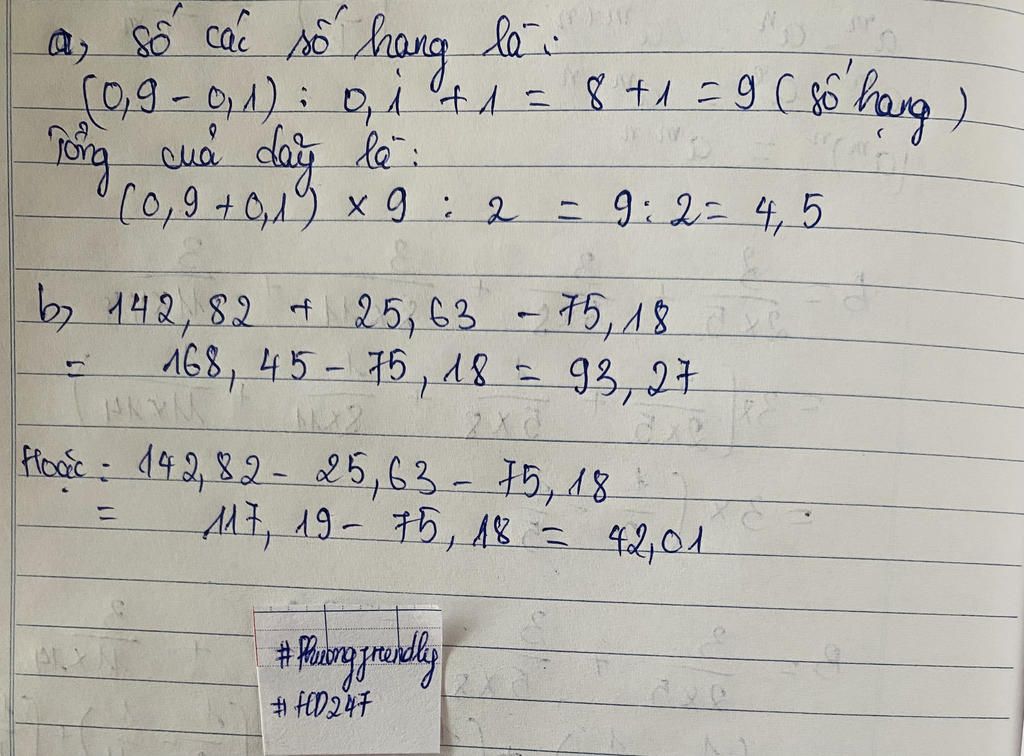 a, số các số hạng là:
(0,9 - 0,1) : 0,1 + 1 = 8 + 1 = 9 ( số hạng )
Tổng của dãy là:
(0,9 + 0,1) × 9 : 2 = 9 : 2 = 4,5
b, 142,82 + 25,63 - 75,18
= 168,45 - 75,18 = 93,27
Hoặc : 142,82 - 25,63 - 75,18
= 117,19 - 75,18 = 42,01
#Phuongfriendly
#HD247